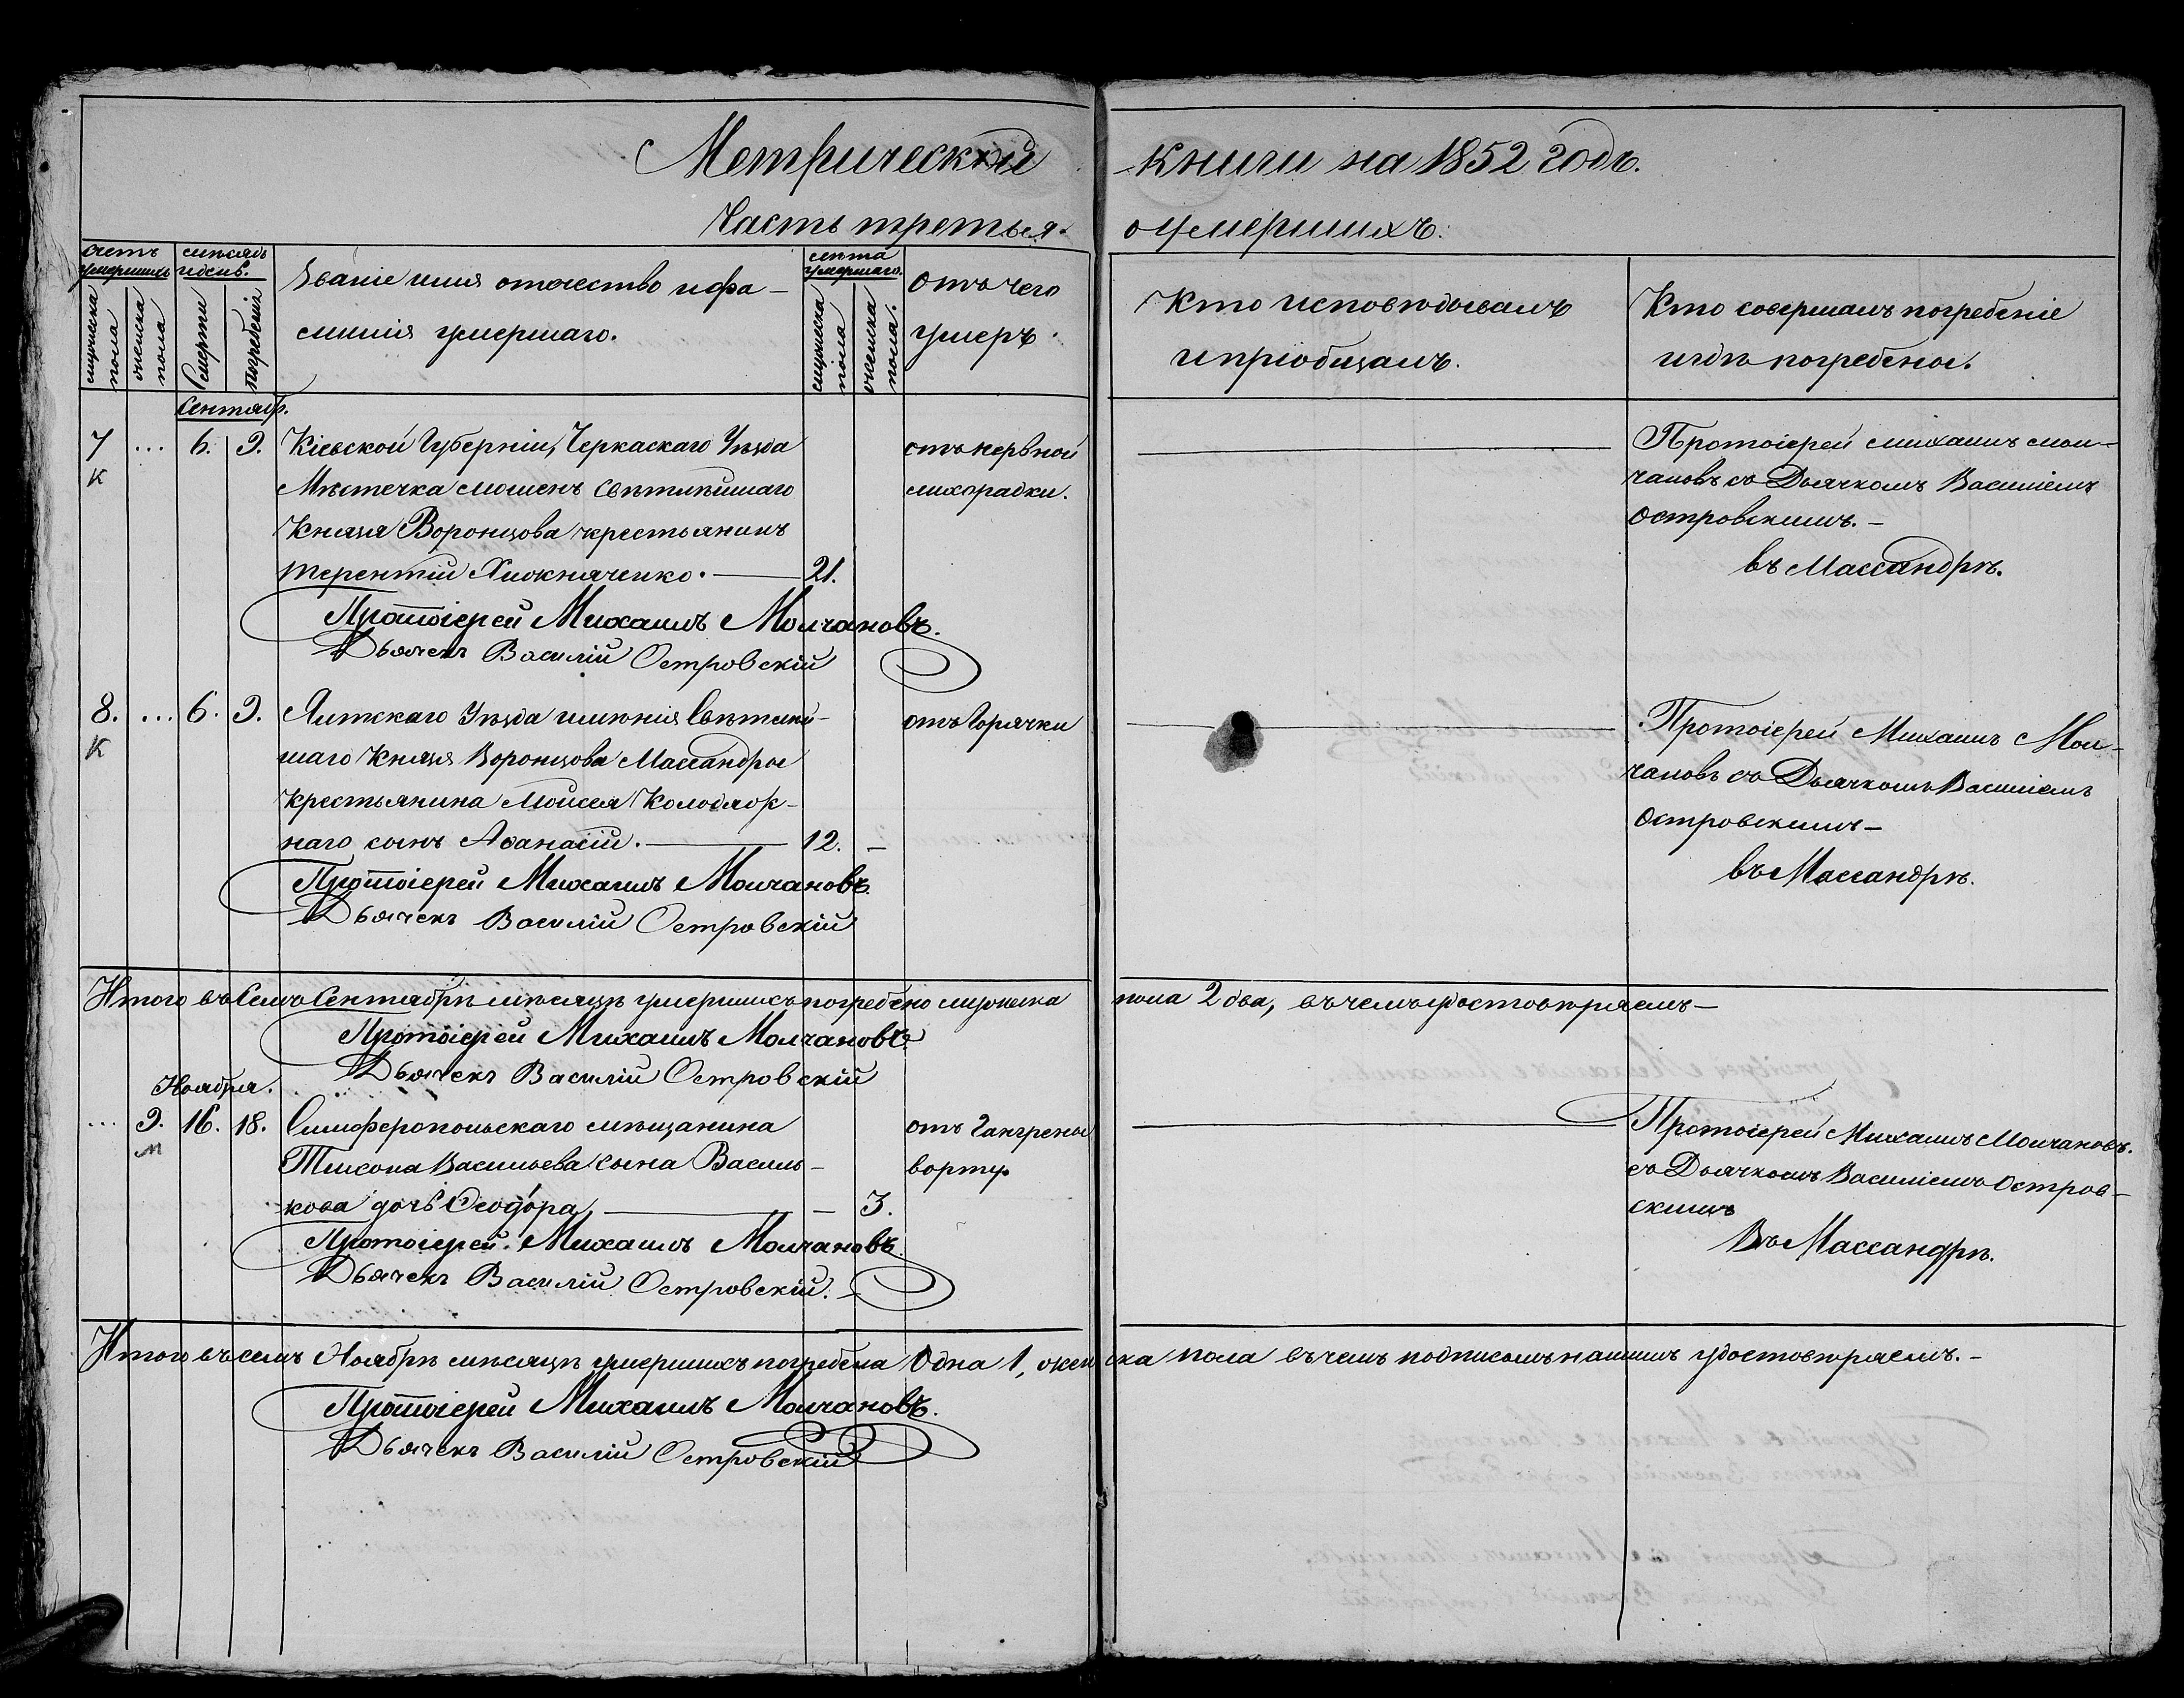 Метрической книги на 1852 годъ.
Часть третья. о умершихъ:
Счетъ умершихъ
мужеска пола
женска пола
Мѣсяцъ и день.
Смерти
погребенія
Званіе имя отчество и фа-
милія умершаго.
Лѣта умершаго.
мужеска пола
женска пола.
Отъ чего
умеръ.
Кто исповѣдывалъ
и пріобщалъ.
Кто совершалъ погребеніе
и гдѣ погребены.
Сентяб.
7 ... 6. 9. Кіевской Губерніи, Черкаскаго Уѣзда отъ нервной Протоіерей Михаилъ Мол-
К Мѣстечка Мошенъ Свѣтлѣйшаго лихорадки. чановъ съ Дьячкомъ Василіемъ
Князя Воронцова крестьянинъ Островскимъ. -
Терентій 21. въ Массандрѣ.
Протоіерей Михаилъ Молчановъ.
Дьячекъ Василій Островскій
8. ... 6. 9. Ялтскаго Уѣзда имѣнія Свѣтлѣй- отъ Горячки Протоіерей Михаилъ Мол-
К шаго Князя Воронцова Массандры чановъ съ Дьячкомъ Василіемъ
Крестьянина Моисея Колодяж- Островскимъ -
наго сынъ Аѳанасій. 12. - въ Массандрѣ.
Протоіерей Михаилъ Молчановъ.
Дьячекъ Василій Островскій
Итого въ Семъ Сентябрѣ мѣсяцѣ умершихъ погребено мужеска пола 2 два, въ чемъ удостовѣряемъ -
Протоіерей Михаилъ Молчановъ.
Дьячекъ Василій Островскій
Ноября.
... 9. 16. 18. Симферопольскаго мѣщанина отъ Гангрены Протоіерей Михаилъ Молчановъ.
м Тихона Васильева сына Василь- во рту съ Дьячкомъ Василіемъ Остров-
кова дочь Ѳеодора, - 3. скимъ
Протоіерей Михаилъ Молчановъ. Въ Массандрѣ.
Дьячекъ Василій Островскій.
Итого въ семъ Ноябрѣ мѣсяцѣ умершихъ погребена Одна 1, женска пола въ чемъ подписомъ нашимъ удостовѣряемъ. -
Протоіерей Михаилъ Молчановъ.
Дьячекъ Василій Островскій